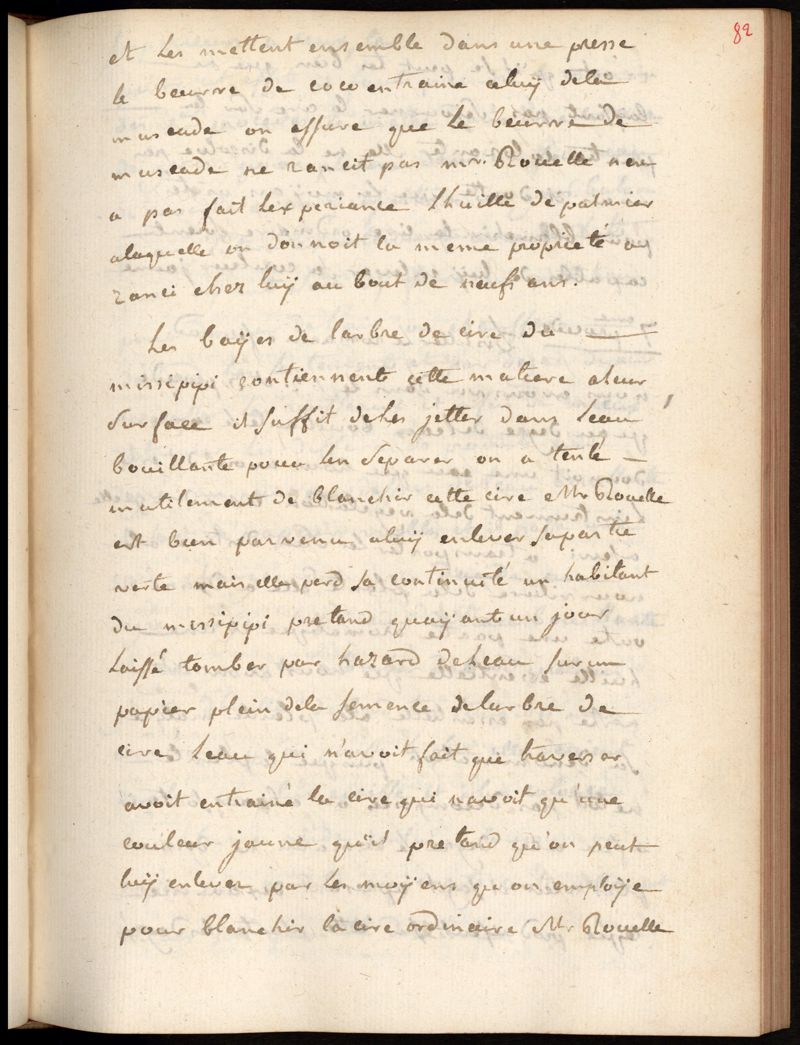 82
et les mettent ensemble dans une presse
le beurre de coco entraine celuÿ dela
muscade on assure que le beurre de
muscade ne rancit pas mr. Rouelle nen
a pas fait lexperiance Lhuille de palmier
alaquelle on donnoit la meme proprieté a
ranci chez luÿ au bout de neufs ans.
Les baÿes de larbre de cire du
missipipi contiennent cette matiere aleur
surface il suffit deles jetter dans leau
bouillante pour len separer on a tenté
inutilement de blanchir cette cire Mr Rouelle
est bien parvenu aluÿ enlever sapartie
verte mais elle perd sa continuité un habitant
du missipipi pretand quaÿant un jour
laissé tomber par hazard deleau sur un
papier plein dela semence delarbre de
cire leau qui n'avoit fait que traverser
avoit entrainé la cire qui navoit qu'une
couleur jaune qu'il pretand qu'on peut
luÿ enlever par les moÿens quon emploÿe
pour blanchir la cire ordinaire Mr Rouelle